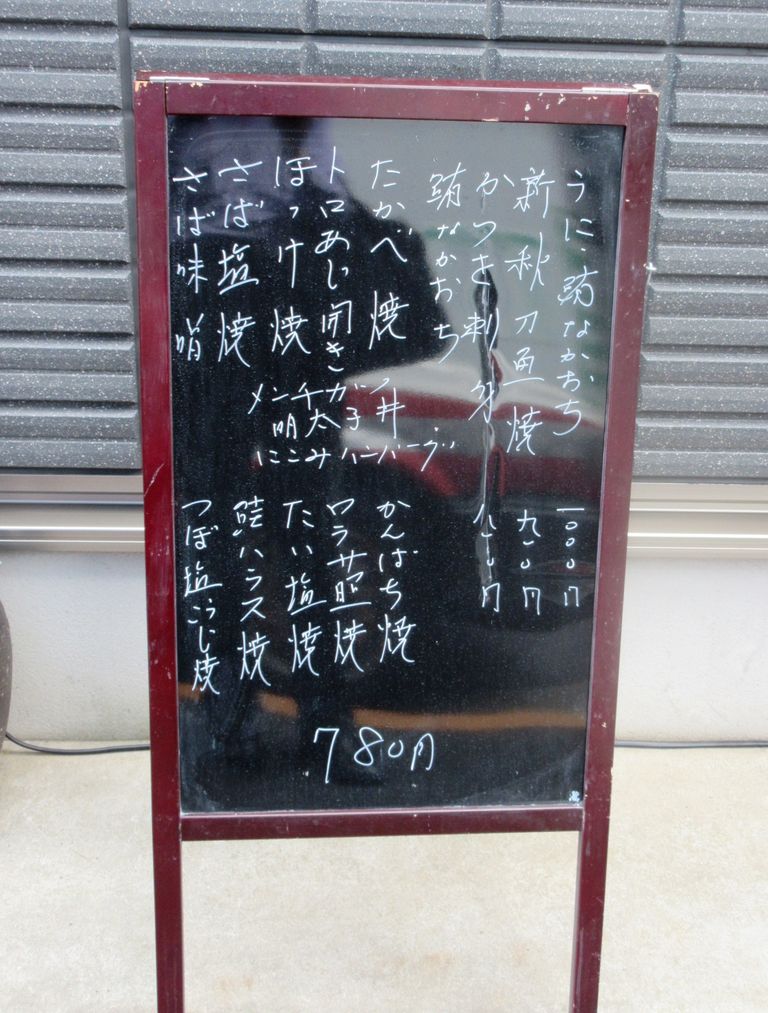 うに、鮪なかおち 一〇〇〇円
新秋刀魚焼 九八〇円
かつを刺身 八八〇円
鮪なかおち
たかべ焼
トロあじ開き
ほっけ焼
さば塩焼
さば味噌
カツ丼
チキンカツ
メンチ
明太子
にこみハンバーグ
かんばち焼
ワラサ照焼
たい塩焼
鮭ハラス焼
つぼ塩こうじ焼
780円